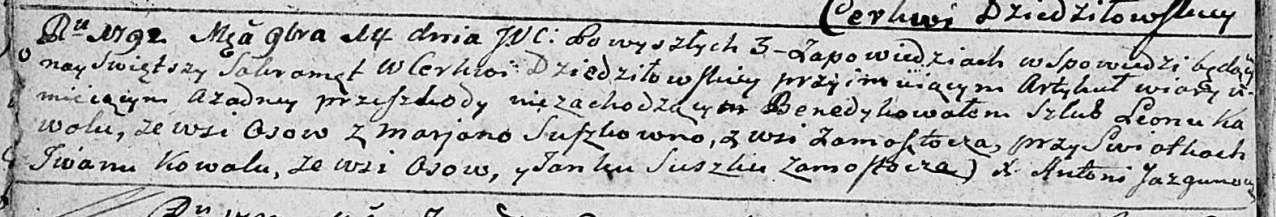 Cerkwi Dziedziłowskiey
Ru 1792 Mca 9bra 14 dnia JVC: Po wyszłych 3-Zapowiedziach w spowiedzi będący
nayświętszy Sakrament W Cerkwi Dziedziłowskiey przyimuiącym Artykuł wiary u-
mieiącym a żadney przeszkody nie zachodzącym Benedykowałem Szlub Leonu Ka
walu, ze wsi Osow z Marjano Suszkowno, z wsi Zamostocza, przy Swiatkach
Iwanu Kowalu, ze wsi Osow, y Janku Suszku Zamostocza) X. Antoni Jazgunowicz